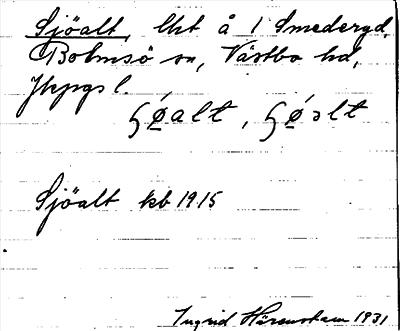 Sjöalt, lht å 1 Smedergd,
Bolmsö sn, Västbo hd,
Jkpgs l.
ʃǿalt, ʃǿəlt
Sjöalt kb 1915
Ingrid Härenstam 1931